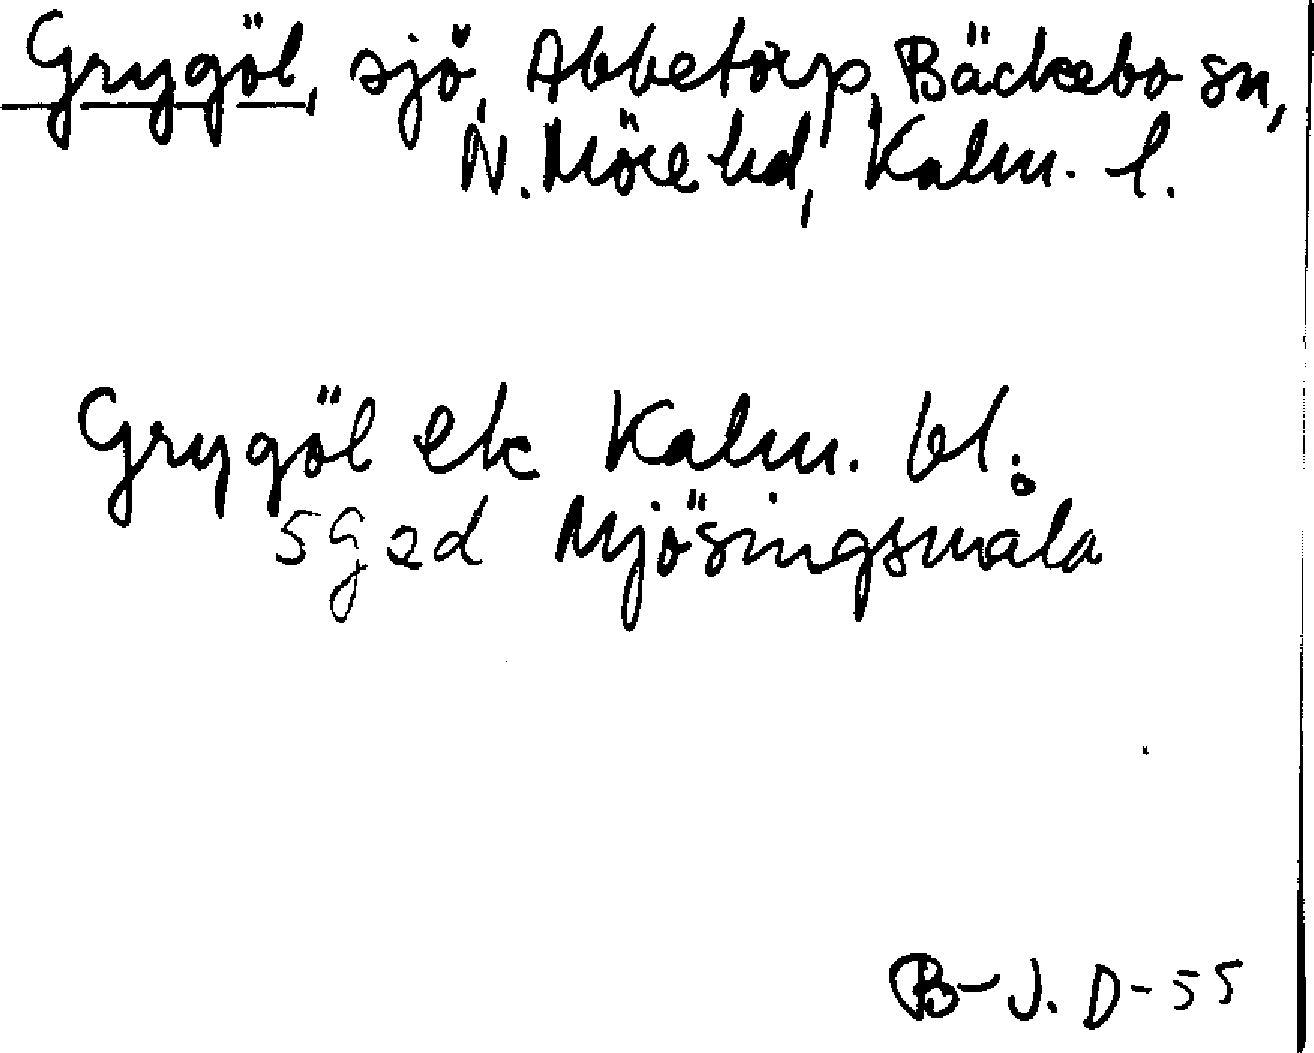 Grygöl, sjö, Abbetorp, Bäckebo sn,
N. Möre hd, Kalm. l.
Grygöl ek Kalm. bl.
5G2d Mjösingsmåla
B-J. D-55